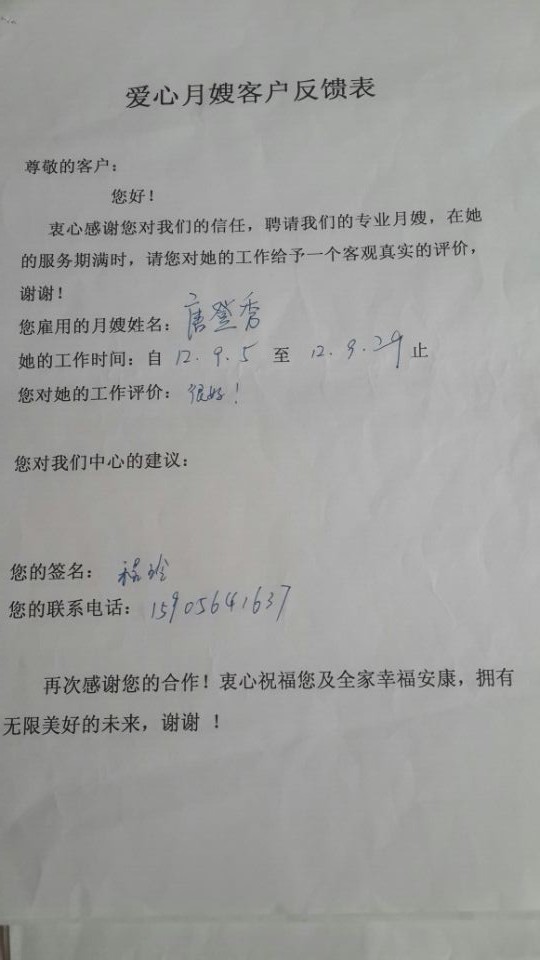 爱心月嫂客户反馈表
尊敬的客户：
您好！
衷心感谢您对我们的信任，聘请我们的专业月嫂，在她
的服务期满时，请您对她的工作给予一个客观真实的评价，
谢谢！
您雇用的月嫂姓名：唐登秀
她的工作时间：自 12.9.5 至 12.9.29 止
您对她的工作评价：很好！
您对我们中心的建议：
您的签名：
您的联系电话：15905641637
再次感谢您的合作！衷心祝福您及全家幸福安康，拥有
无限美好的未来，谢谢 ！